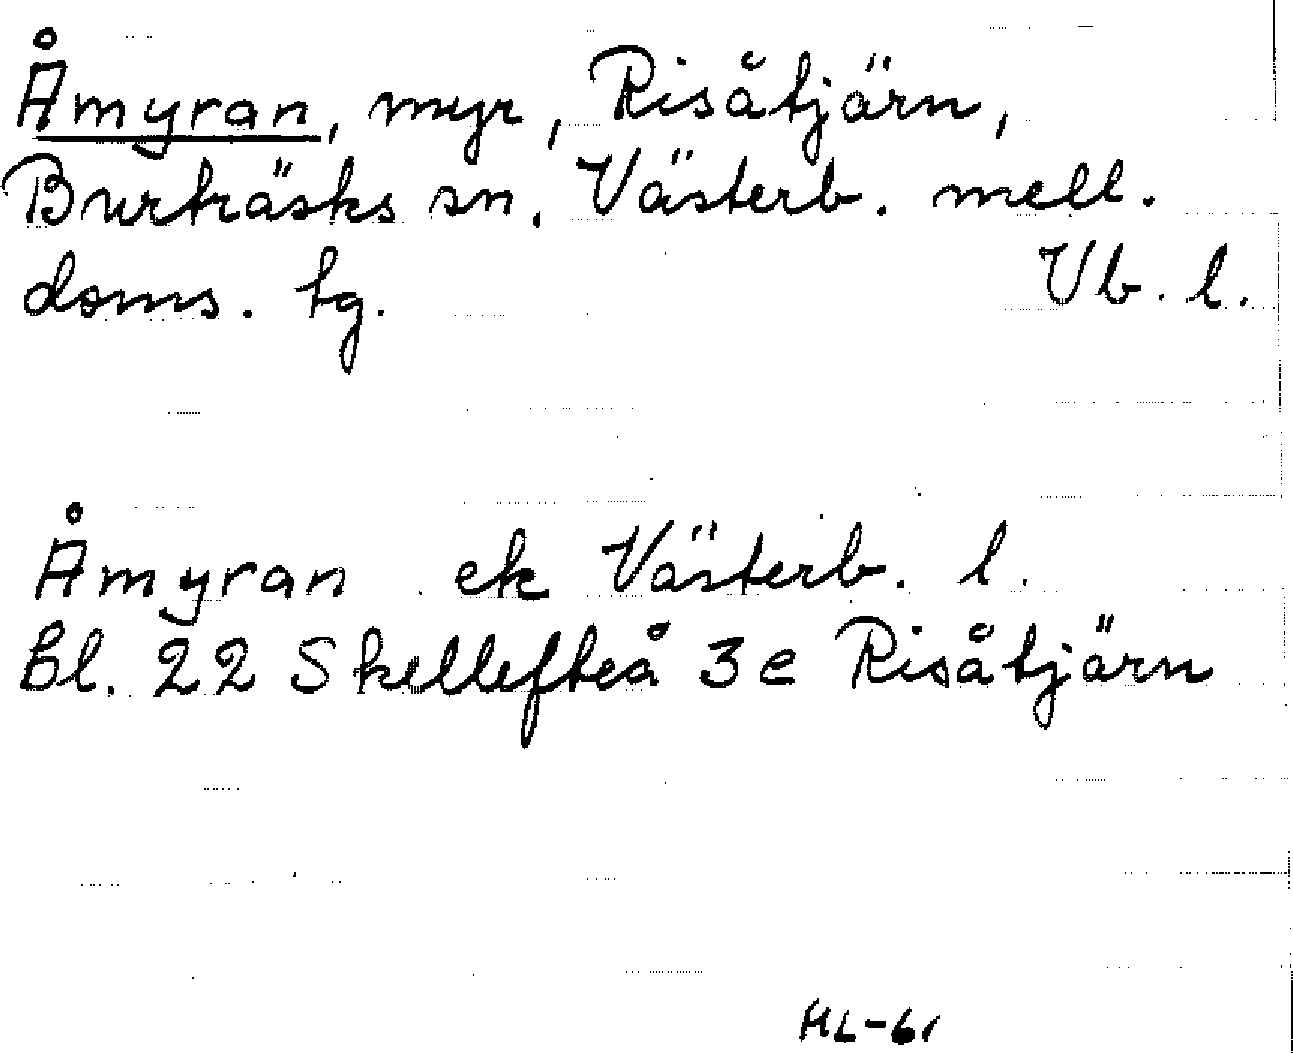 Åmyran, myr, Risåtjärn,
Burträsks sn. Västerb. mell.
doms. tg. Vb. l.
Åmyran ek Västerb. l.
Bl. 22 Skellefteå 3e Risåtjärn
HL-61